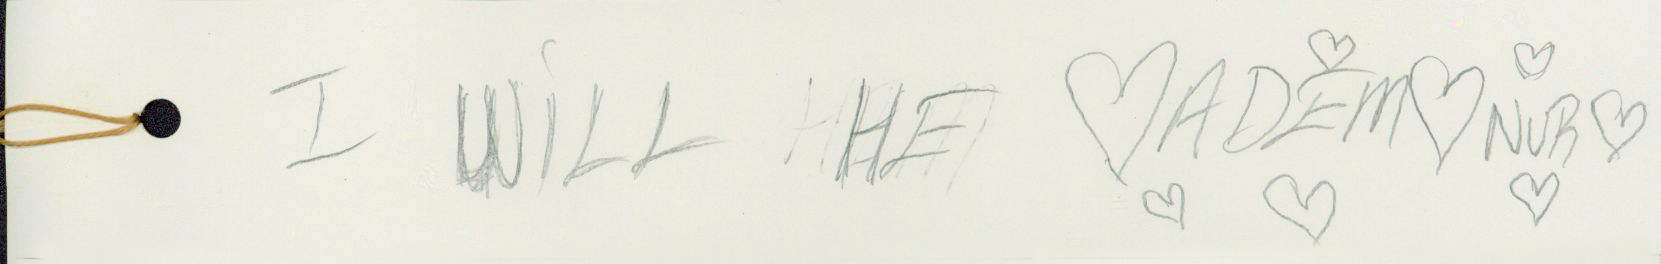 I WiLL HE ADEM NUR